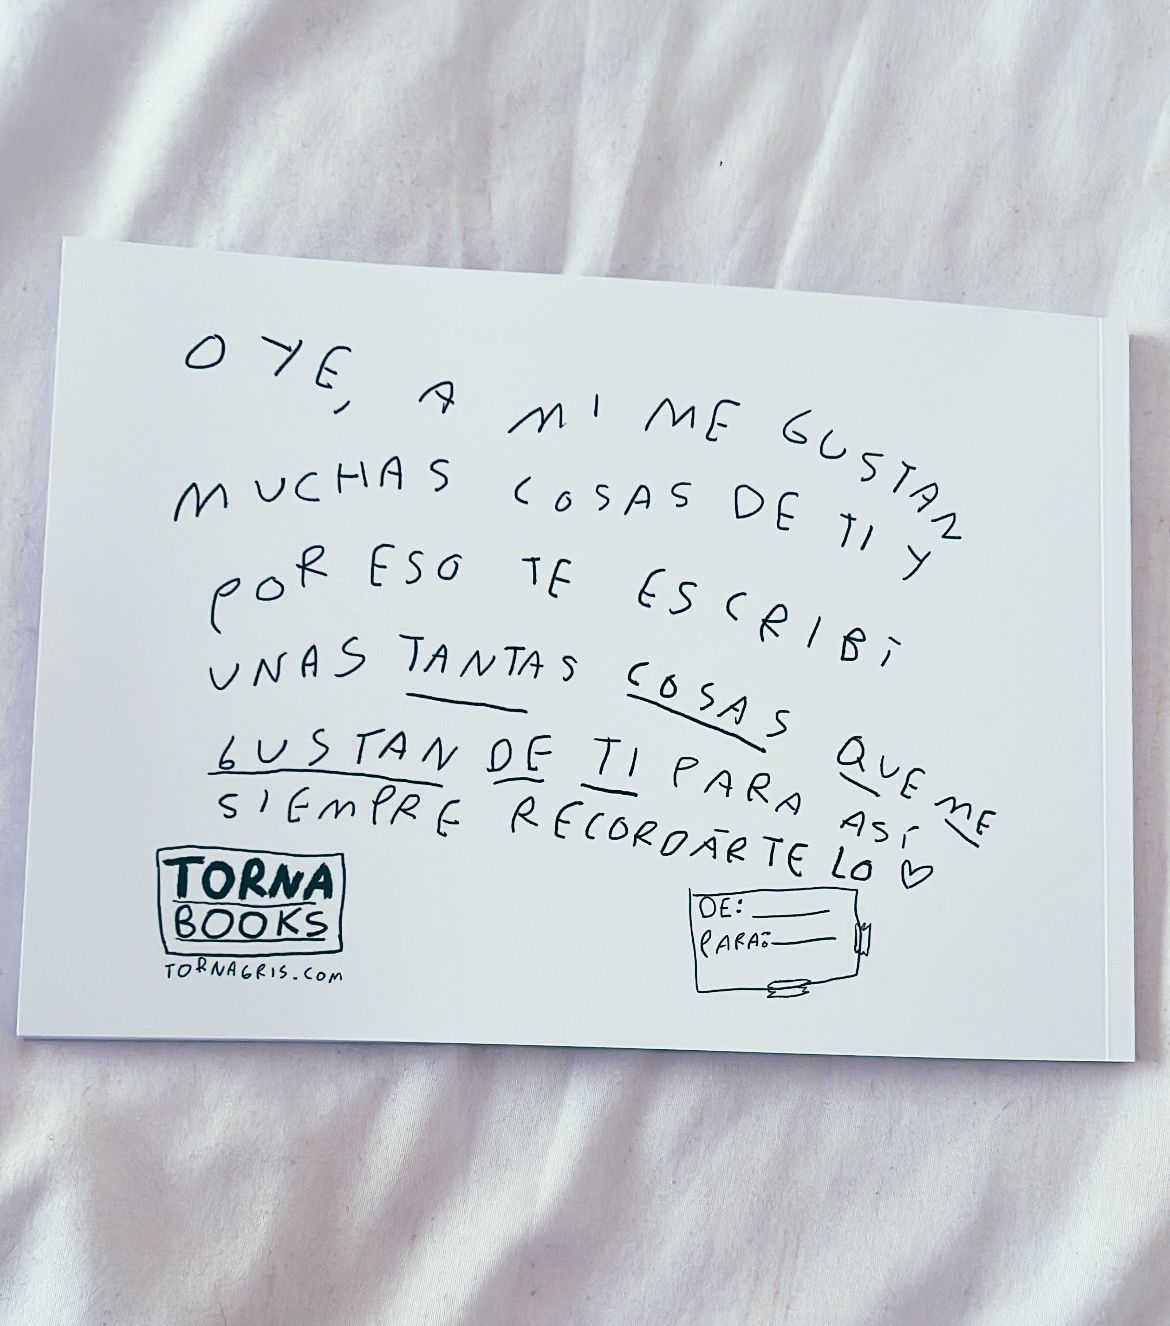 OYE, A MI ME GUSTAN
MUCHAS COSAS DE TI Y
POR ESO TE ESCRIBÍ
UNAS TANTAS COSAS QUE ME
GUSTAN DE TI PARA ASÍ
SIEMPRE RECORDÁRTELO ♡
TORNA
BOOKS
TORNAGRIS.COM
DE: ______
PARA: ______